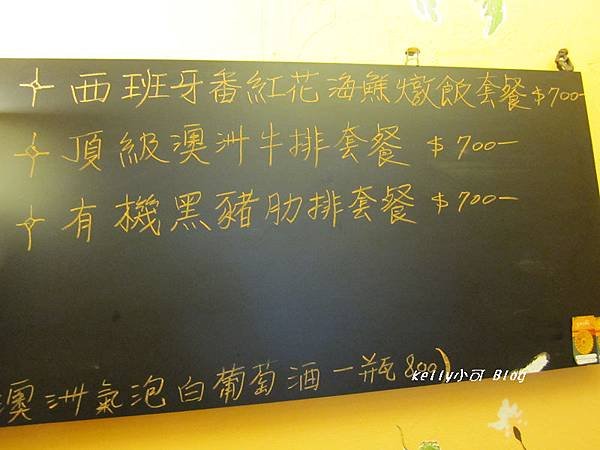 西班牙番紅花海鮮燉飯套餐 $700-
頂級澳洲牛排套餐 $700-
有機黑豬肋排套餐 $700-
澳洲氣泡白葡萄酒一瓶800
kelly小可 Blog